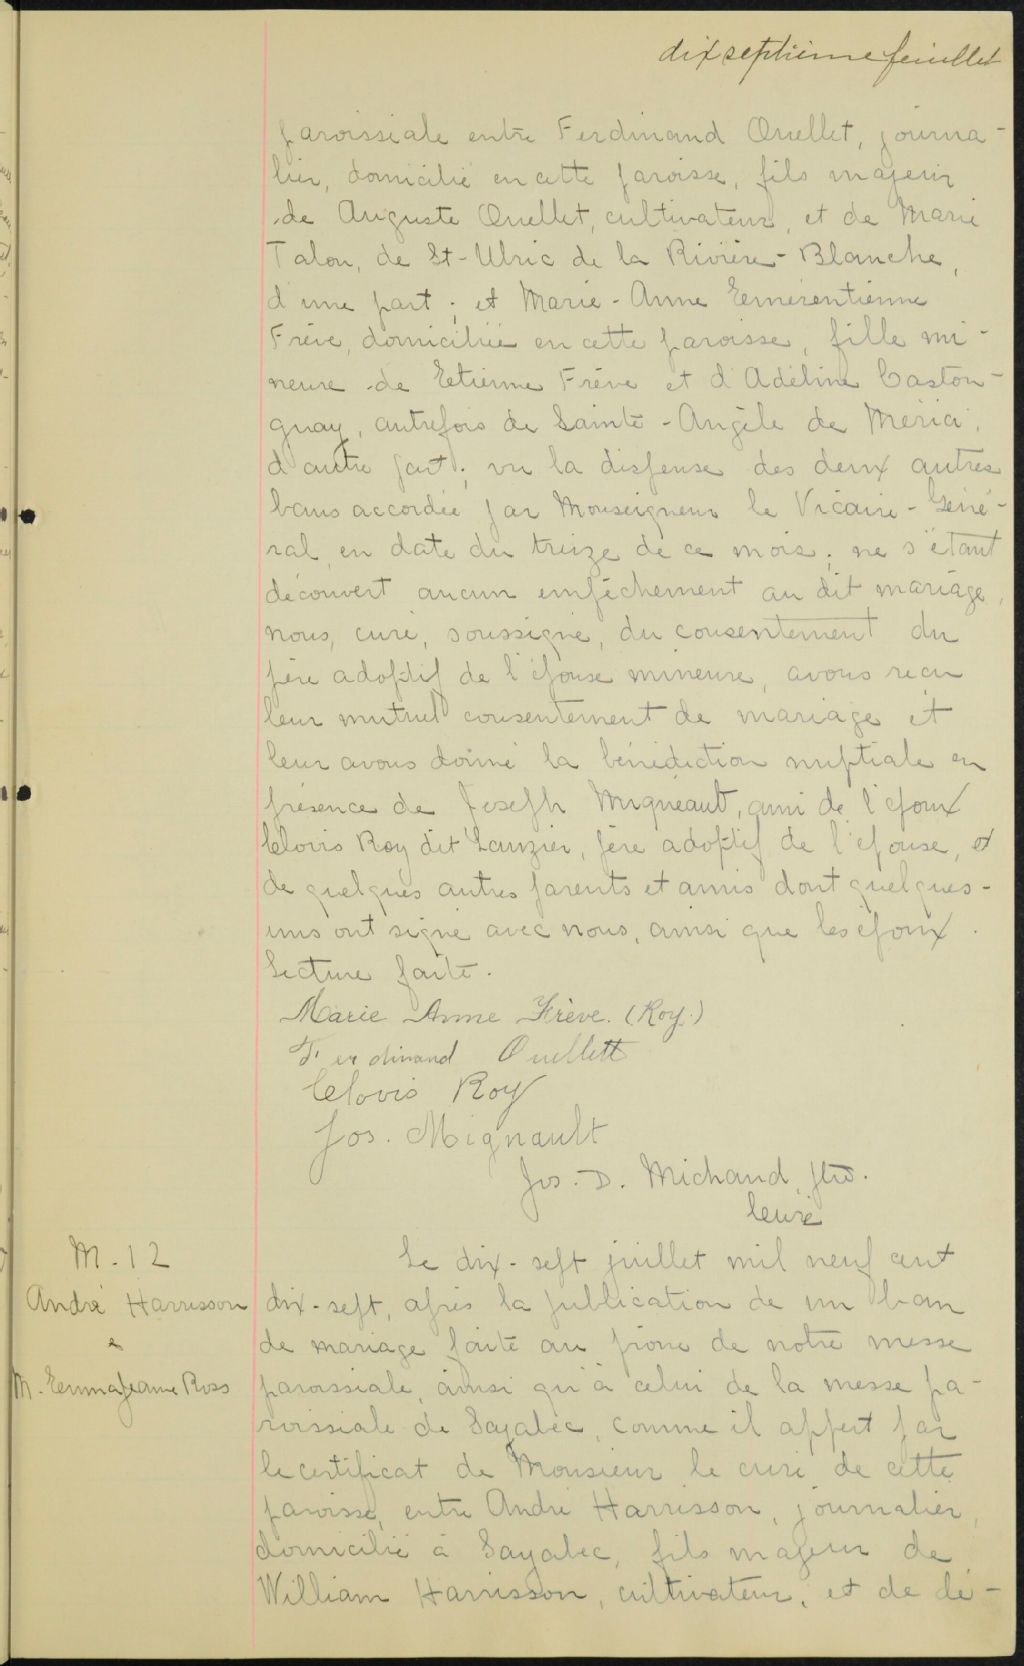 dix septième feuillet
paroissiale entre Ferdinand Ouellet, journa-
lier, domicilié en cette paroisse, fils majeur
de Auguste Ouellet, cultivateur, et de Marie
Talon, de St-Ulric de la Rivière-Blanche,
d'une part; et Marie-Anne Émérentienne
Frève, domiciliée en cette paroisse, fille mi-
neure de Etienne Frève et d'Adéline Caston-
guay, autrefois de Sainte-Angèle de Mérici,
d'autre part; vu la dispense des deux autres
bans accordée par Monseigneur le Vicaire-Géné-
ral en date du treize de ce mois; ne s'étant
découvert aucun empêchement au dit mariage,
nous, curé, soussigné, du consentement du
père adoptif de l'épouse mineure, avons reçu
leur mutuel consentement de mariage et
leur avons donné la bénédiction nuptiale en
présence de Joseph Migneault, ami de l'époux
Clovis Roy dit Lauzier, père adoptif de l'épouse, et
de quelques autres parents et amis dont quelques-
uns ont signé avec nous, ainsi que les époux.
Lecture faite.
Marie Anne Frève. (Roy.)
Ferdinand Ouellett
Clovis Roy
Jos. Mignault
Jos. D. Michaud, ptre.
Curé
M. 12
André Harrisson
&
M. Emma Jeanne Ross
Le dix-sept juillet mil neuf cent
dix-sept, après la publication de un ban
de mariage faite au prône de notre messe
paroissiale, ainsi qu'à celui de la messe pa-
roissiale de Sayabec, comme il appert par
le certificat de Monsieur le curé de cette
paroisse, entre André Harrisson, journalier,
domicilié à Sayabec, fils majeur de
William Harrisson, cultivateur, et de dé-